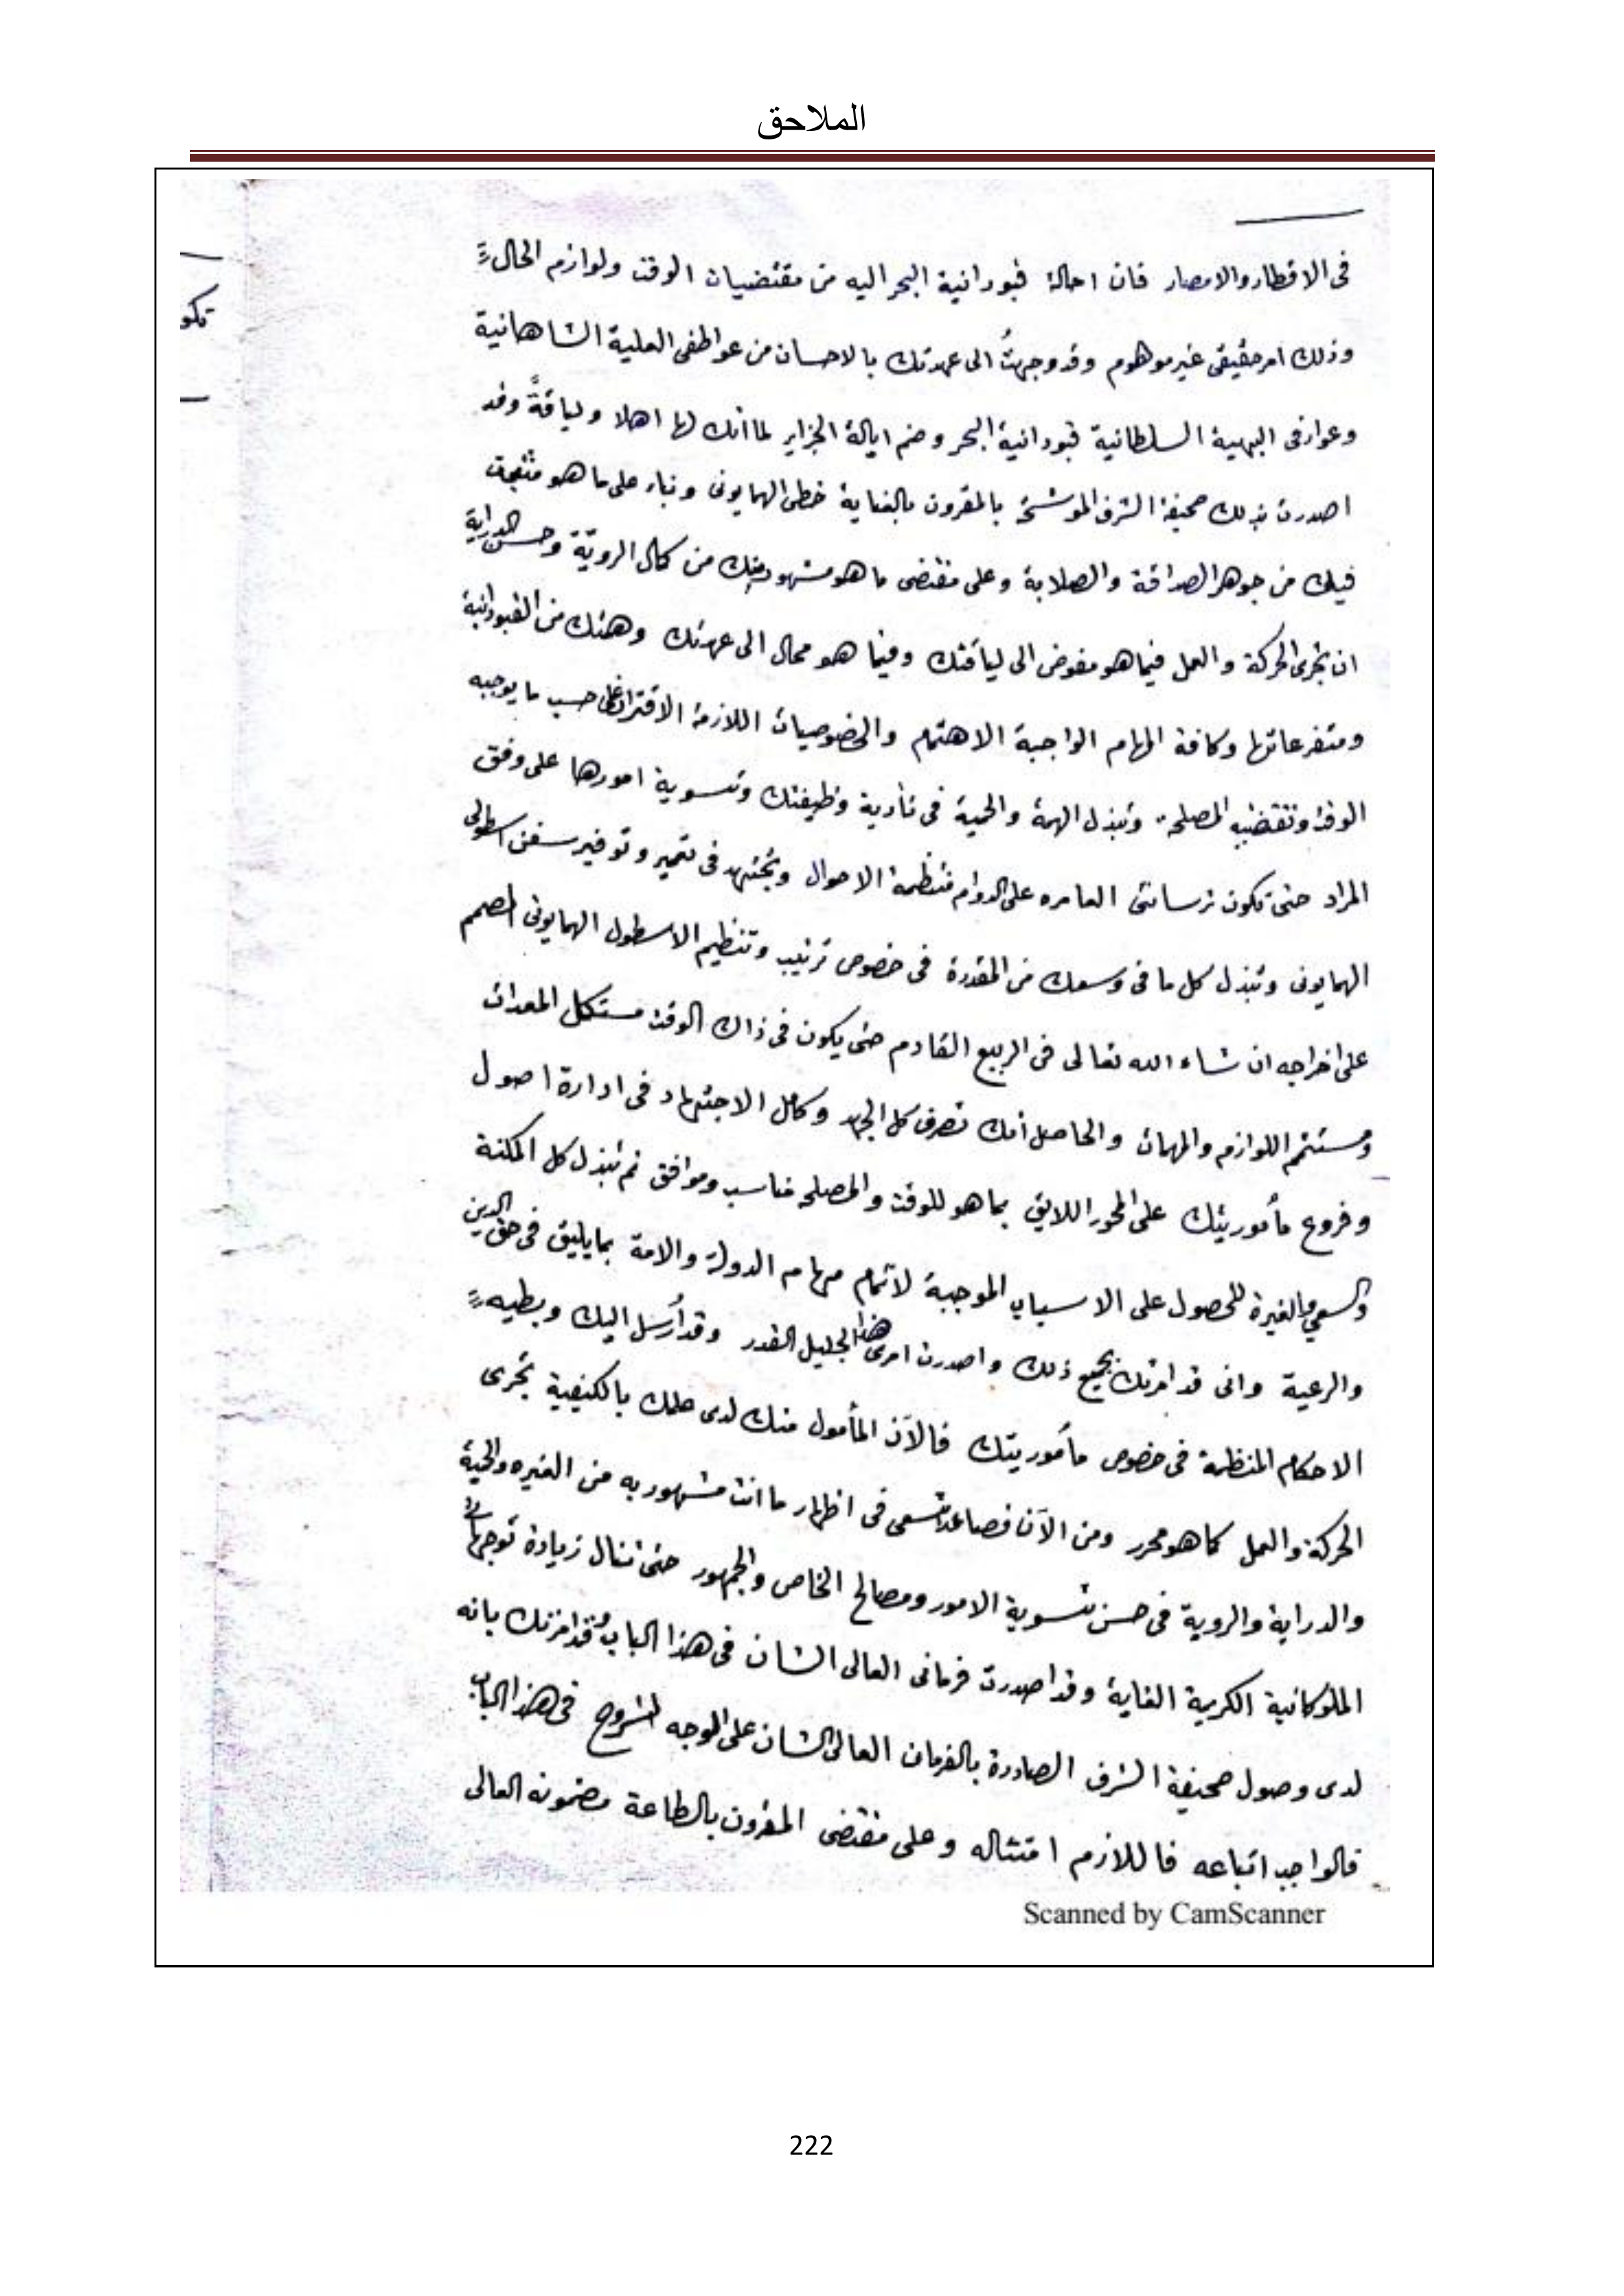 الملاحق
فى الاقطار والامصار فان احالة قبودانية البحر اليه من مقتضيات الوقت ولوازم الحال
وذلك امر حقيقى غير موهوم وقد وجهتُ الى عهدتك بالاحسان من عواطفى العلية الشاهانية
وعوارفى البهية السلطانية قبودانية البحر وضم ايالة الجزاير لما انك لها اهلا ولياقةً وقد
اصدرت بذلك صحيفة الشرف الموشحة بالمقرون بالعناية خطى الهمايونى وبناء على ما هو مثبت
فيك من جوهر الصداقة والصلابة وعلى مقتضى ما هو مشهود منك من كمال الروية وحسن الدراية
ان تجرى الحركة والعمل فيما هو مفوض الى لياقتك وفيما هو محال الى عهدتك وهمتك من القبودانية
ومتفرعاتها وكافة المهام الواجبة الاهتمام والخصوصيات اللازمة على حسب ما يوجبه
الوقت وتقتضيه المصلحة وتبذل الهمة والحمية فى تأدية وظيفتك وتسوية امورها على وفق
المراد حتى تكون ترسانتى العامره على الدوام منتظمة الاحوال وتجتهد فى تعمير وتوفير سفن اسطولى
الهمايونى وتبذل كل ما فى وسعك من المقدرة فى خصوص ترتيب وتنظيم الاسطول الهمايونى المصمم
على اخراجه ان شاء الله تعالى فى الربيع القادم حتى يكون فى ذاك الوقت مستكمل المعدات
ومستتم اللوازم والمهمات والحاصل انك تصرف كل الجهد وكامل الاجتهاد فى ادارة اصول
وفروع مأموريتك على المحور اللايق بما هو للوقت والمصلحه مناسب وموافق ثم تبذل كل المكنة
والسعي والغيرة للحصول على الاسباب الموجبة لاتمام مهام الدولة والامة بما يليق فى حق الدين
والرعية وانى قد امرتك بجميع ذلك واصدرت امرى هذا الجليل القدر وقد أرسل اليك وبطيه
الاحكام المنظمة فى خصوص مأموريتك فالآن المأمول منك لدى علمك بالكيفية تجرى
الحركة والعمل كما هو محرر ومن الآن فصاعدا تسعى فى اظهار ما انت مشهور به من الغيره والحمية
والدراية والروية فى حسن تسوية الامور ومصالح الخاص والجمهور حتى تنال زيادة توجهاتى
الملوكانية الكريمة الغاية وقد اصدرت فرمانى العالى الشان فى هذا الباب وقد امرتك بانه
لدى وصول صحيفة الشرف الصادرة بالفرمان العالى الشان على الوجه المشروح فى هذا الباب
فالواجب اتباعه فاللازم امتثاله وعلى مقتضى المقرون بالطاعة مضمونه العالى
تكو
Scanned by CamScanner
222